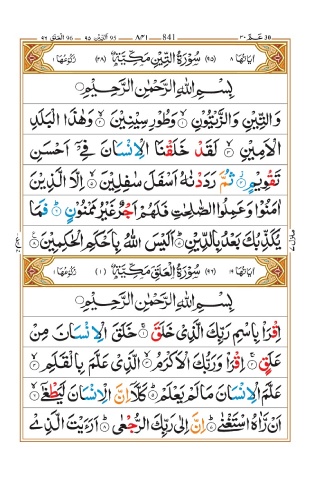 العلق ٩٦ 96 التين ٩٥ 95 ٨٤١ 841 عمّ ٣٠ 30
اٰيَاتُهَا ٨ (٩٥) سُوْرَةُ التِّيْنِ مَكِّيَّةٌ (٢٨) رُكُوْعُهَا ١
بِسْمِ اللّٰهِ الرَّحْمٰنِ الرَّحِيْمِ
وَالتِّيْنِ وَالزَّيْتُوْنِ ۙ۝۱ وَطُوْرِ سِيْنِيْنَ ۙ۝۲ وَهٰذَا الْبَلَدِ
الْاَمِيْنِ ۙ۝۳ لَقَدْ خَلَقْنَا الْاِنْسَانَ فِيْۤ اَحْسَنِ
تَقْوِيْمٍ ؗ۝۴ ثُمَّ رَدَدْنٰهُ اَسْفَلَ سٰفِلِيْنَ ۙ۝۵ اِلَّا الَّذِيْنَ
اٰمَنُوْا وَعَمِلُوا الصّٰلِحٰتِ فَلَهُمْ اَجْرٌ غَيْرُ مَمْنُوْنٍ ؕ۝۶ فَمَا
يُكَذِّبُكَ بَعْدُ بِالدِّيْنِ ؕ۝۷ اَلَيْسَ اللّٰهُ بِاَحْكَمِ الْحٰكِمِيْنَ ۝۸
اٰيَاتُهَا ١٩ (٩٦) سُوْرَةُ الْعَلَقِ مَكِّيَّةٌ (١) رُكُوْعُهَا ١
بِسْمِ اللّٰهِ الرَّحْمٰنِ الرَّحِيْمِ
اِقْرَاْ بِاسْمِ رَبِّكَ الَّذِيْ خَلَقَ ۚ۝۱ خَلَقَ الْاِنْسَانَ مِنْ
عَلَقٍ ۚ۝۲ اِقْرَاْ وَرَبُّكَ الْاَكْرَمُ ۙ۝۳ الَّذِيْ عَلَّمَ بِالْقَلَمِ ۙ۝۴
عَلَّمَ الْاِنْسَانَ مَا لَمْ يَعْلَمْ ؕ۝۵ كَلَّاۤ اِنَّ الْاِنْسَانَ لَيَطْغٰۤى ۙ۝۶
اَنْ رَّاٰهُ اسْتَغْنٰى ؕ۝۷ اِنَّ اِلٰى رَبِّكَ الرُّجْعٰى ؕ۝۸ اَرَءَيْتَ الَّذِيْ